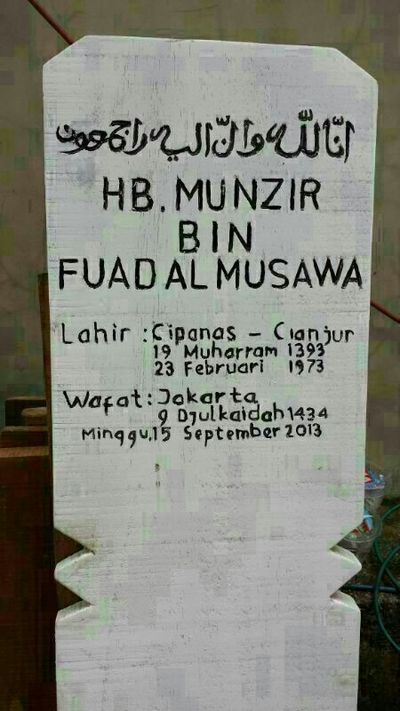 انّا للّٰه وانّ اليه راجعون
HB. MUNZIR
BIN
FUAD AL MUSAWA
Lahir : Cipanas - Cianjur
19 Muharram 1393
23 Februari 1973
Wafat : Jakarta
9 Djulkaidah 1434
Minggu, 15 September 2013